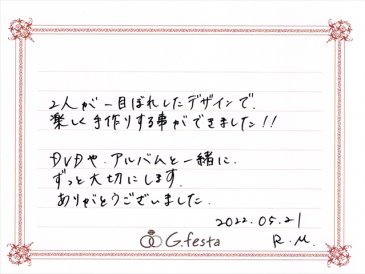 2人が一目ぼれしたデザインで、
楽しく手作りする事ができました!!
DVDや、アルバムと一緒に、
ずっと大切にします。
ありがとうございました。
2022.05.21
G.festa
R.M.